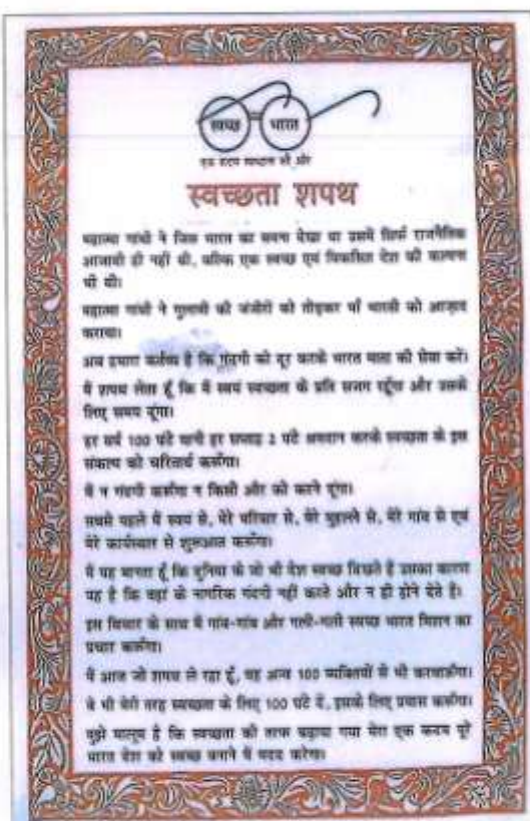 स्वच्छ भारत
एक कदम स्वच्छता की ओर
स्वच्छता शपथ
महात्मा गांधी ने जिस भारत का सपना देखा था उसमें सिर्फ राजनैतिक
आजादी ही नहीं थी, बल्कि एक स्वच्छ एवं विकसित देश की कल्पना
भी थी।
महात्मा गांधी ने गुलामी की जंजीरों को तोड़कर माँ भारती को आज़ाद
कराया।
अब हमारा कर्तव्य है कि गंदगी को दूर करके भारत माता की सेवा करें।
मैं शपथ लेता हूँ कि मैं स्वयं स्वच्छता के प्रति सजग रहूँगा और उसके
लिए समय दूंगा।
हर वर्ष 100 घंटे यानी हर सप्ताह 2 घंटे श्रमदान करके स्वच्छता के इस
संकल्प को चरितार्थ करूँगा।
मैं न गंदगी करूँगा न किसी और को करने दूंगा।
सबसे पहले मैं स्वयं से, मेरे परिवार से, मेरे मुहल्ले से, मेरे गांव से एवं
मेरे कार्यस्थल से शुरुआत करूँगा।
मैं यह मानता हूँ कि दुनिया के जो भी देश स्वच्छ दिखते हैं उसका कारण
यह है कि वहां के नागरिक गंदगी नहीं करते और न ही होने देते हैं।
इस विचार के साथ मैं गांव-गांव और गली-गली स्वच्छ भारत मिशन का
प्रचार करूँगा।
मैं आज जो शपथ ले रहा हूँ, वह अन्य 100 व्यक्तियों से भी करवाऊँगा।
वे भी मेरी तरह स्वच्छता के लिए 100 घंटे दें, इसके लिए प्रयास करूँगा।
मुझे मालूम है कि स्वच्छता की तरफ बढ़ाया गया मेरा एक कदम पूरे
भारत देश को स्वच्छ बनाने में मदद करेगा।